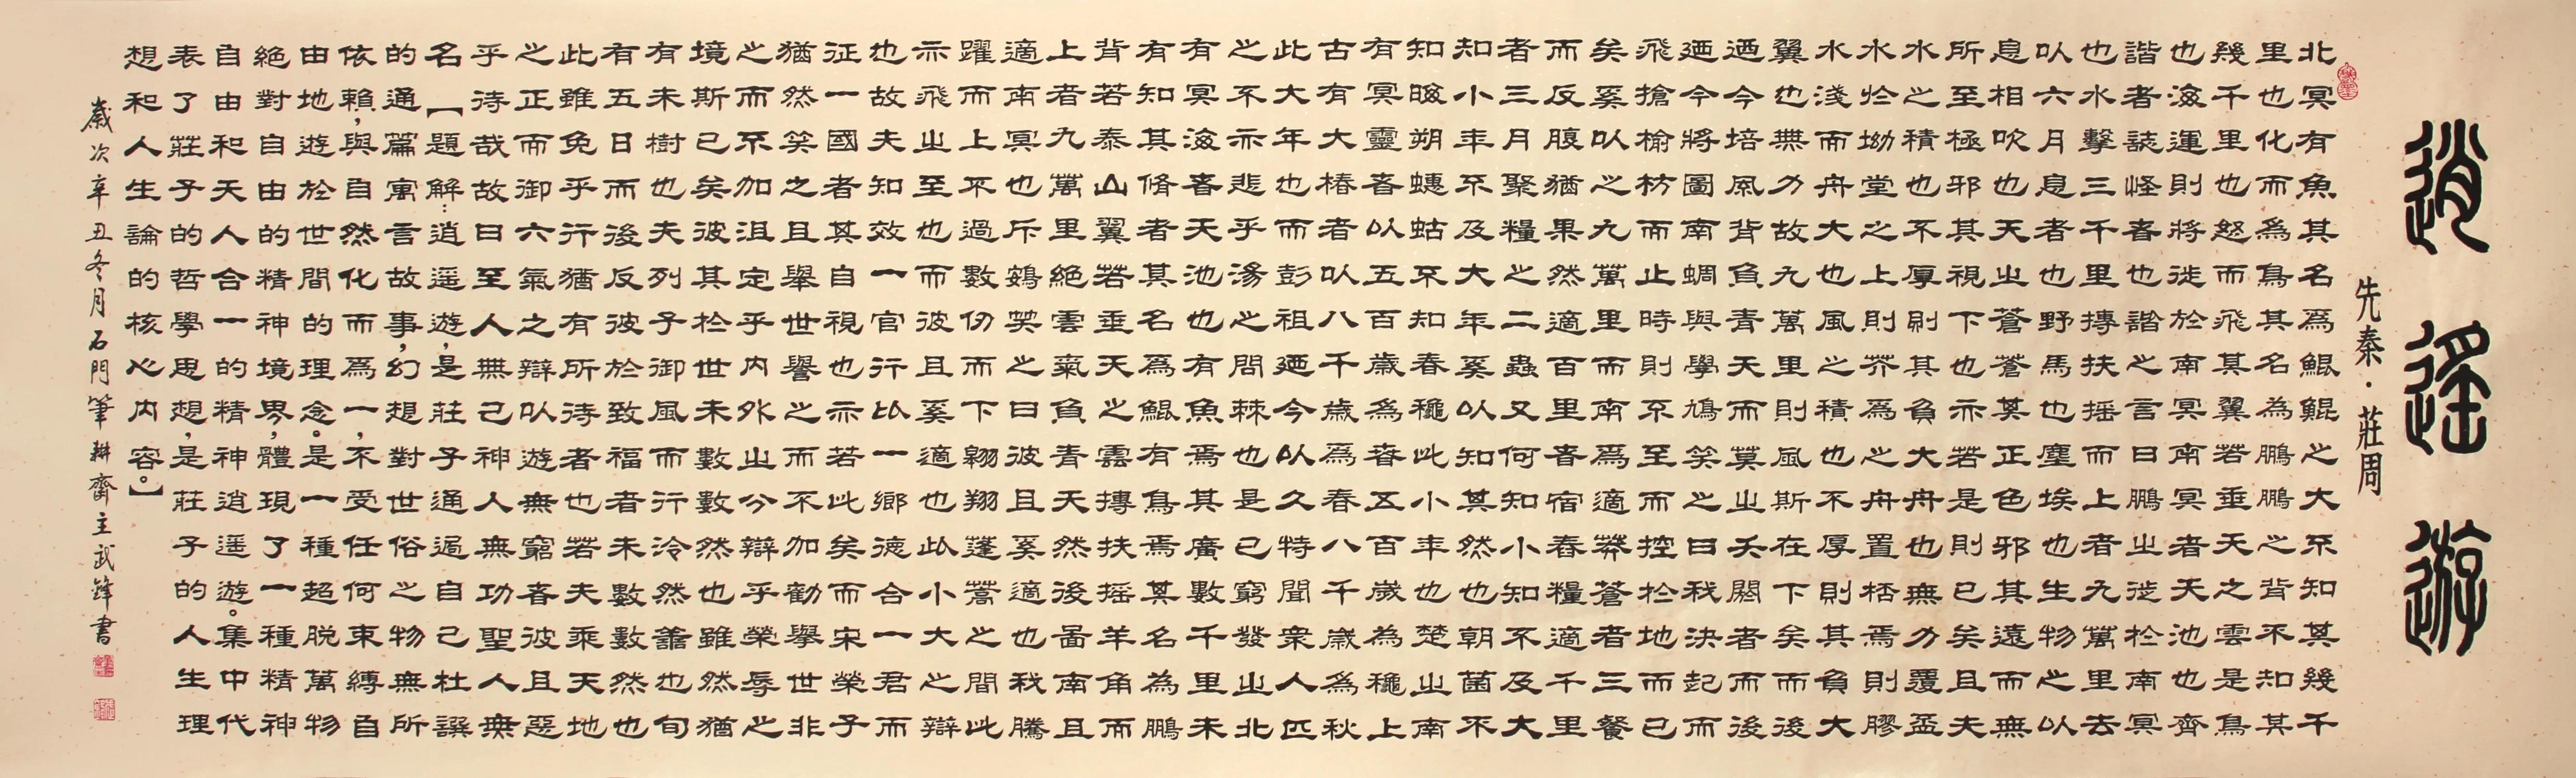 逍遥遊
先秦·莊周
北冥有魚其名爲鯤鯤之大不知其幾千
里也化而爲鳥其名為鵬鵬之背不知其
幾千里也怒而飛其翼若垂天之雲是鳥
也海運則將徙於南冥南冥者天池也齊
諧者誌怪者也諧之言曰鵬之徙於南冥
也水擊三千里摶扶摇而上者九萬里去
以六月息者也野馬也塵埃也生物之以
息相吹也天之蒼蒼其正色邪其遠而無
所至極邪其視下也亦若是則已矣且夫
水之積也不厚則其負大舟也無力覆盃
水於坳堂之上則芥為之舟置桮焉則膠
水淺而舟大也風之積也不厚則其負大
翼也無力故九萬里則風斯在下矣而後
迺今培風背負青天而莫之夭閼者而後
廼今將圖南蜩與學鳩笑之曰我決起而
飛搶榆枋而止時則不至而控於地而已
矣奚以之九萬里而南爲適莽蒼者三餐
而反腹猶果然適百里者宿舂糧適千里
者三月聚糧之二蟲又何知小知不及大
知小年不及大年奚以知其然也朝菌不
知晦朔蟪蛄不知春龝此小年也楚之南
有冥靈者以五百歲爲春五百歲為龝上
古有大椿者以八千歲爲春八千歲爲秋
此大年也而彭祖廼今以久特聞衆人匹
之不亦悲乎湯之問棘也是已窮發之北
有冥海者天池也有魚焉其廣數千里未
有知其脩者其名爲鯤有鳥焉其名為鵬
背若泰山翼若垂天之雲摶扶摇羊角而
上者九萬里絕雲氣負青天然後圖南且
適南冥也斥鴳笑之曰彼且奚適也我騰
躍而上不過數仞而下翱翔蓬蒿之間此
亦飛之至也而彼且奚適也此小大之辯
也故夫知效一官行比一鄉德合一君而
征一國者其自視也亦若此矣而宋榮子
猶然笑之且舉世譽之而不加勸舉世非
之而不加沮定乎内外之分辯乎榮辱之
境斯已矣彼其於世未數數然也雖然猶
有未樹也夫列子御風而行泠然善也旬
有五日而後反彼於致福者未數數然也
此雖免乎行猶有所待者也若夫乘天地
之正而御六氣之辯以遊無窮者彼且惡
乎待哉故曰至人無己神人無功聖人無
名【題解:逍遥遊,是莊子通過自己杜譔
的通篇寓言故事,幻想對世俗之物無所
依賴,與自然化而爲一,不受任何束縛自
由地遊於世間的理念。是一種超脱萬物
絕對自由的精神境界,體現了一種精神
自由和天人合一的精神逍遥遊。集中代
表了莊子的哲學思想,是莊子的人生理
想和人生論的核心内容。】
歲次辛丑冬月石門筆耕齋主武鋒書